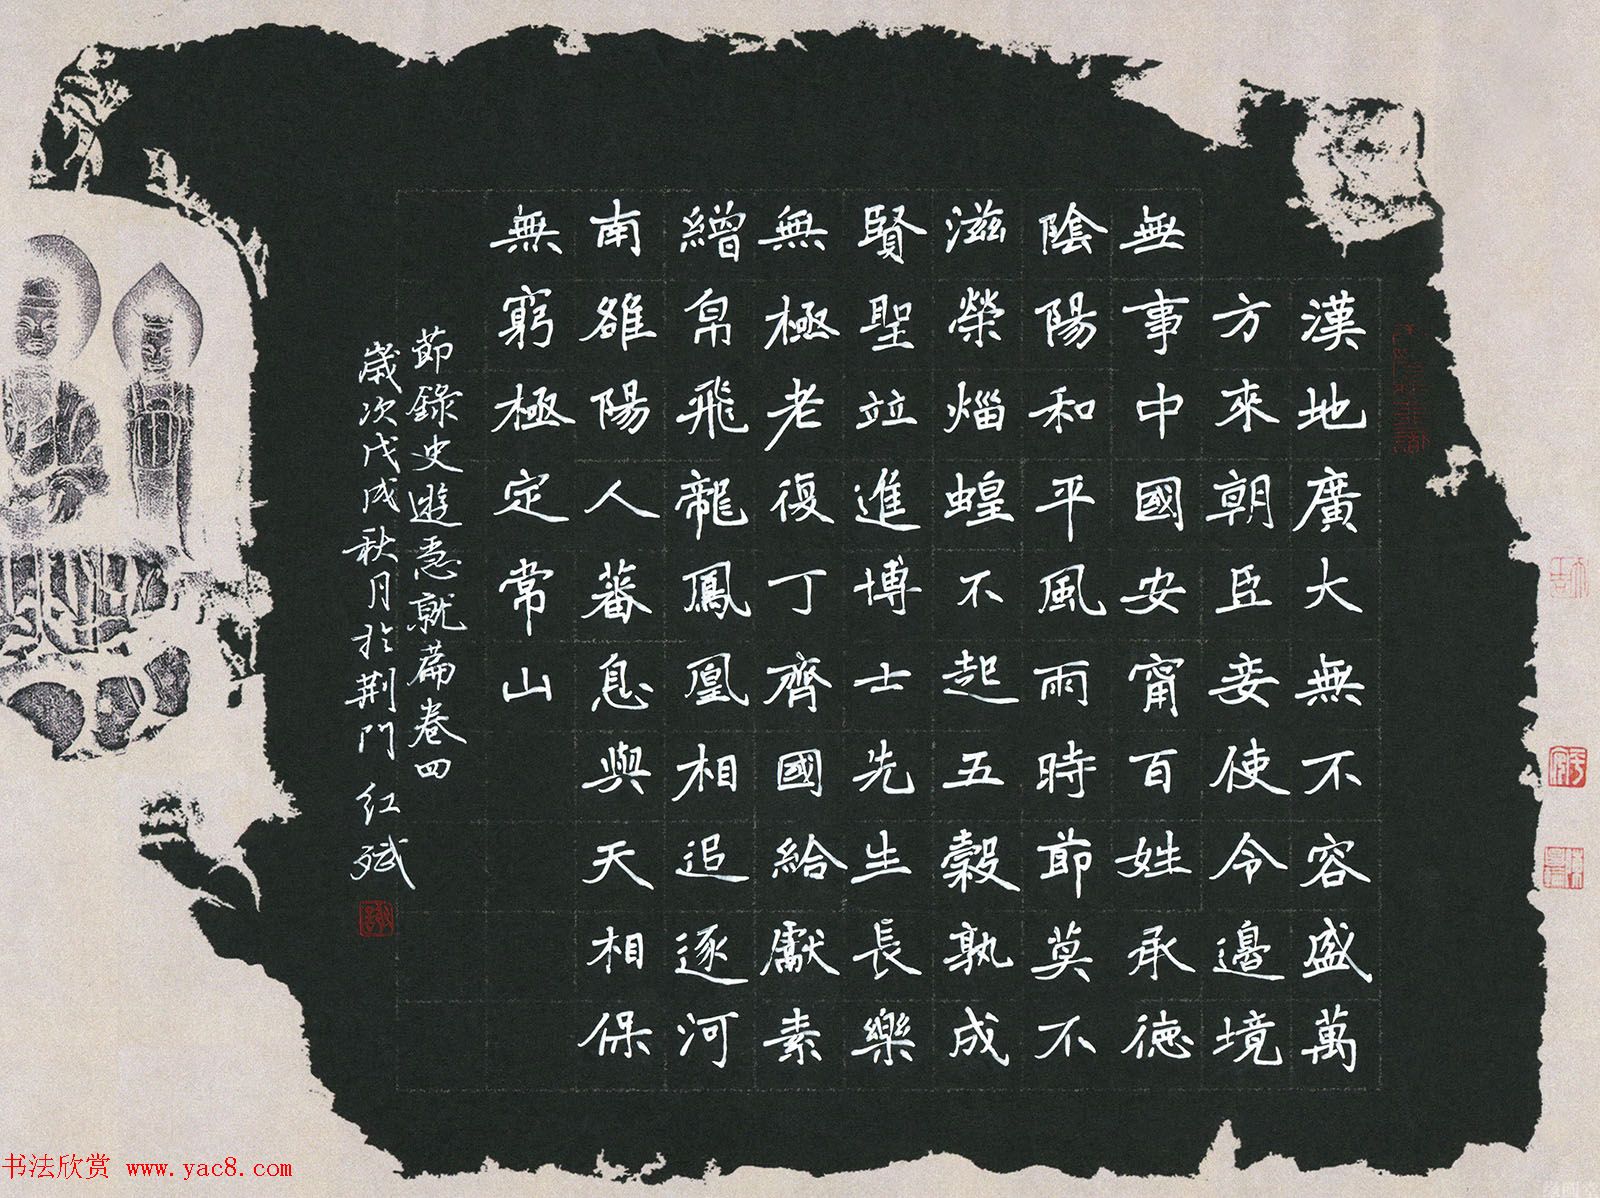 漢地廣大無不容盛萬
方來朝臣妾使令邊境
無事中國安甯百姓承德
陰陽和平風雨時節莫不
滋榮㷙蝗不起五穀孰成
賢聖竝進博士先生長樂
無極老復丁齊國給獻素
繒帛飛龍鳳凰相追逐河
南雒陽人蕃息與天相保
無窮極定常山
節錄史遊急就篇卷四
歲次戊戌秋月於荆門 红斌
书法欣赏 www.yac8.com